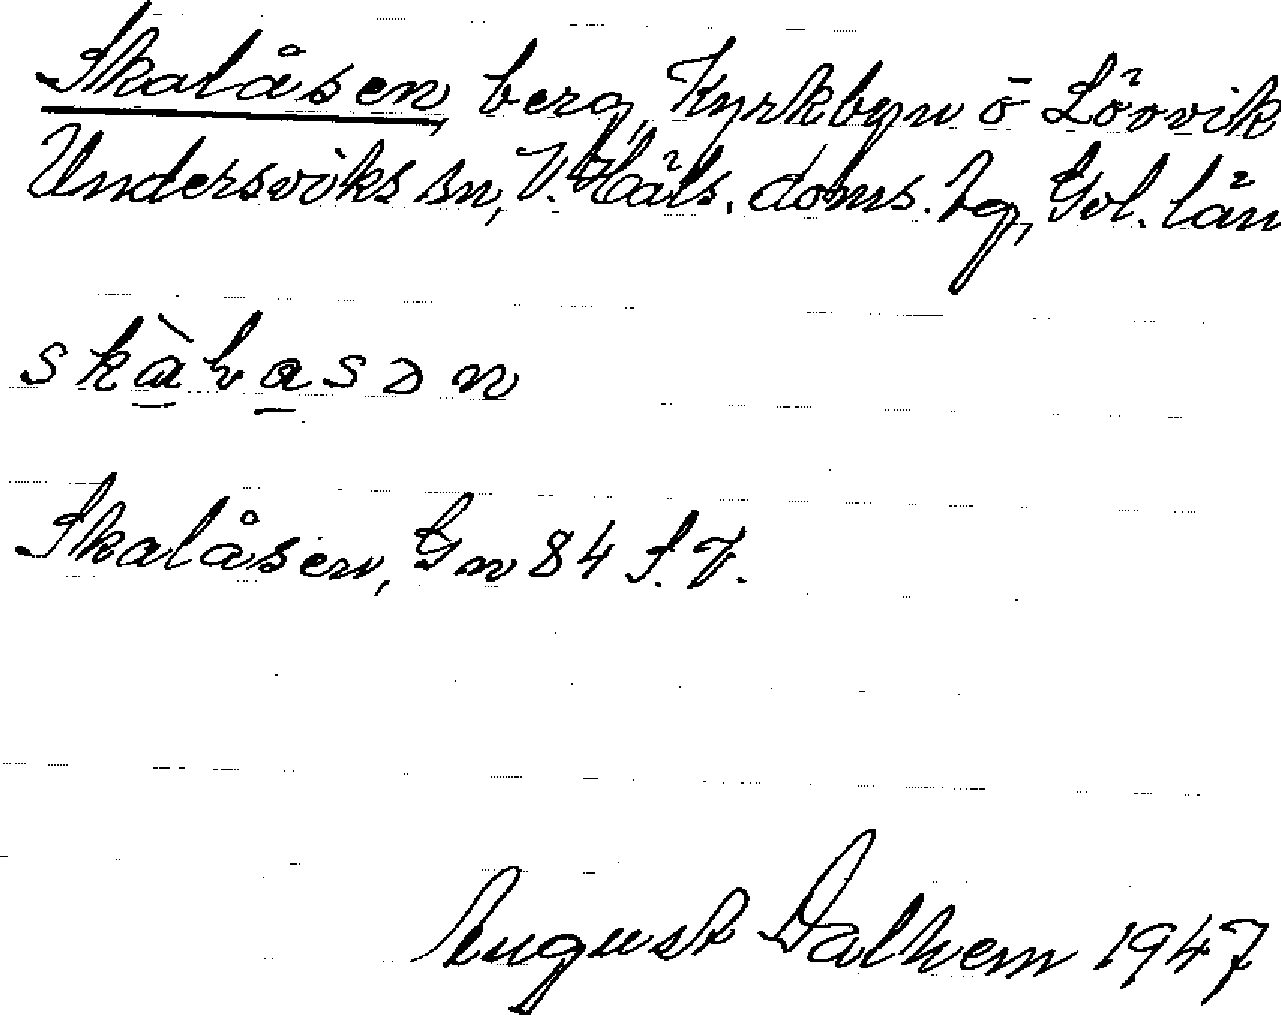 Skalåsen, berg, Kyrkbyn o Lörvik
Undersviks sn, V. Häls. doms. hg, Gvl. län
skàlasən
Skalåsen, Gn 84 S.V.
August Dalhem 1947